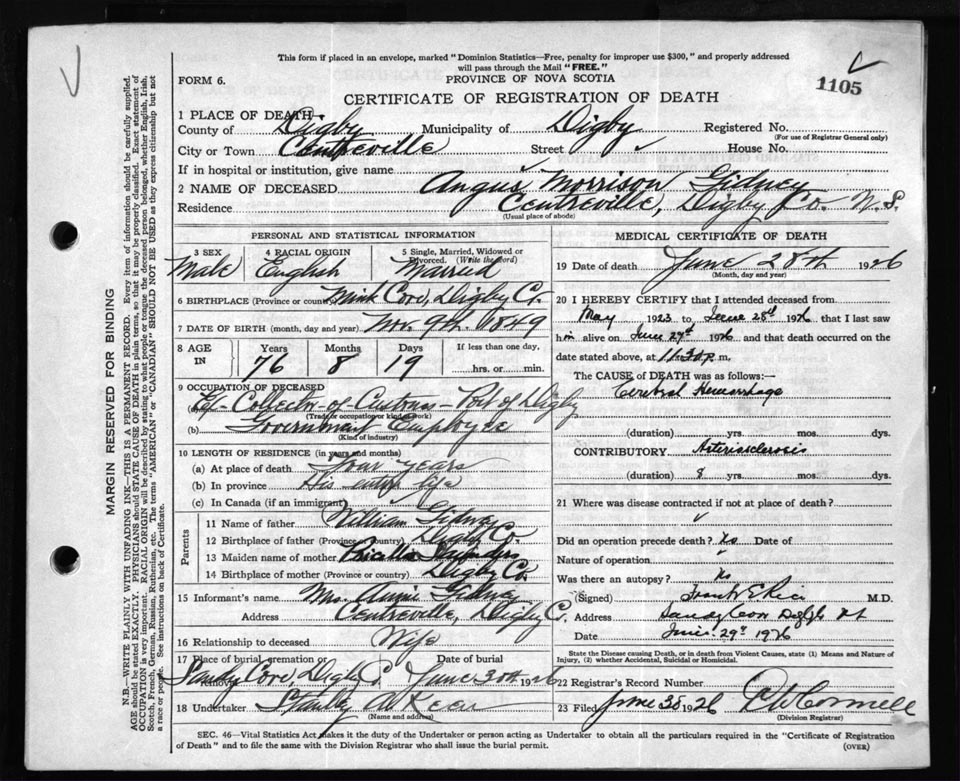 This form if placed in an envelope, marked "Dominion Statistics—Free, penalty for improper use $300," and properly addressed
will pass through the Mail "FREE."
FORM 6.
PROVINCE OF NOVA SCOTIA
1105
CERTIFICATE OF REGISTRATION OF DEATH
1 PLACE OF DEATH—
County of Digby Municipality of Digby Registered No.
(For use of Registrar General only)
City or Town Centreville Street House No.
If in hospital or institution, give name
2 NAME OF DECEASED Angus Morrison Gidney
Residence Centreville, Digby Co. N.S.
(Usual place of abode)
PERSONAL AND STATISTICAL INFORMATION
3 SEX 4 RACIAL ORIGIN 5 Single, Married, Widowed or Divorced. (Write the word)
Male English Married
6 BIRTHPLACE (Province or country) Mink Cove, Digby Co.
7 DATE OF BIRTH (month, day and year) Nov. 9th. 1849
8 AGE IN Years Months Days If less than one day,
76 8 19 hrs. or min.
9 OCCUPATION OF DECEASED
Ex-Collector-of-Customs-Port of Digby
(Trade or occupation or kind of work)
(b) Government Employee
(Kind of industry)
10 LENGTH OF RESIDENCE (in years and months)
(a) At place of death four years
(b) In province His entire life
(c) In Canada (if an immigrant)
Parents
11 Name of father William Gidney
12 Birthplace of father (Province or country) Digby Co.
13 Maiden name of mother Pricilla Saunders
14 Birthplace of mother (Province or country) Digby Co.
15 Informant's name Mrs. Annie Gidney
Address Centreville, Digby Co.
16 Relationship to deceased Wife
17 Place of burial, cremation or removal Date of burial
Sandy Cove, Digby Co. June 30th 1926
18 Undertaker Stanley
(Name and address)
MEDICAL CERTIFICATE OF DEATH
19 Date of death June 28th 1926
(Month, day and year)
20 I HEREBY CERTIFY that I attended deceased from
May 1923 to June 28th 1926, that I last saw
him alive on June 27th 1926 and that death occurred on the
date stated above, at 11.30 p.m.
The CAUSE of DEATH was as follows:—
Cerebral Hemorrhage
(duration) yrs. mos. dys.
CONTRIBUTORY Arteriosclerosis
(duration) 8 yrs. mos. dys.
21 Where was disease contracted if not at place of death?
Did an operation precede death? No Date of
Nature of operation
Was there an autopsy? No
(Signed) Frank E Rice M.D.
Address Sandy Cove Digby
Date June 29th 1926
State the Disease causing Death, or in death from Violent Causes, state (1) Means and Nature of
Injury, (2) whether Accidental, Suicidal or Homicidal.
22 Registrar's Record Number
23 Filed June 30 1926
(Division Registrar)
SEC. 46—Vital Statistics Act makes it the duty of the Undertaker or person acting as Undertaker to obtain all the particulars required in the "Certificate of Registration
of Death" and to file the same with the Division Registrar who shall issue the burial permit.
(OVER)
MARGIN RESERVED FOR BINDING
N.B.—WRITE PLAINLY WITH UNFADING INK—THIS IS A PERMANENT RECORD. Every item of information should be carefully supplied.
AGE should be stated EXACTLY. PHYSICIANS should STATE CAUSE OF DEATH in plain terms, so that it may be properly classified. Exact statement of
OCCUPATION is very important. RACIAL ORIGIN will be described by stating to what people or tongue the deceased person belonged, whether English, Irish,
Scotch, French, German, Russian, Ruthenian, etc. The terms "AMERICAN" or "CANADIAN" SHOULD NOT BE USED as they express citizenship but not
a race or people. See instructions on back of Certificate.